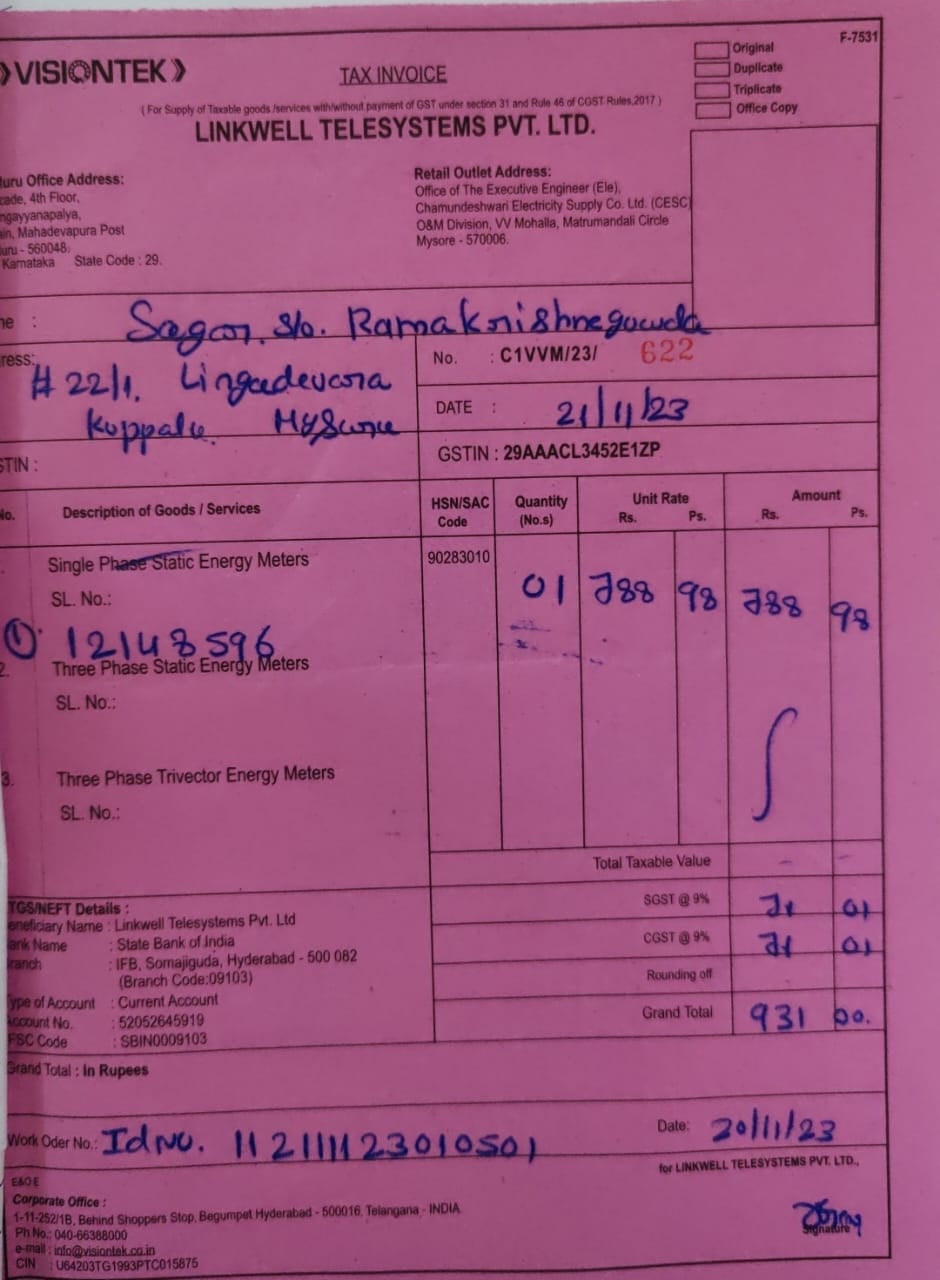 VISIONTEK
TAX INVOICE
F-7531
Original
Duplicate
Triplicate
Office Copy
( For Supply of Taxable goods /services with/without payment of GST under section 31 and Rule 46 of CGST Rules,2017 )
LINKWELL TELESYSTEMS PVT. LTD.
uru Office Address:
cade, 4th Floor,
ngayyanapalya,
ain, Mahadevapura Post
uru - 560048.
Karnataka State Code : 29.
Retail Outlet Address:
Office of The Executive Engineer (Ele),
Chamundeshwari Electricity Supply Co. Ltd. (CESC)
O&M Division, VV Mohalla, Matrumandali Circle
Mysore - 570006.
me : Sagar. S/o. Ramakrishnegowda
ress: # 22/1. Lingadevara
Koppalu. Mysore
No. : C1VVM/23/ 622
DATE : 21/11/23
STIN :
GSTIN : 29AAACL3452E1ZP
No. Description of Goods / Services HSN/SAC Code Quantity (No.s) Unit Rate Rs. Ps. Amount Rs. Ps.
Single Phase Static Energy Meters 90283010 01 788 98 788 98
SL. No.:
① 12148596
2. Three Phase Static Energy Meters
SL. No.:
3. Three Phase Trivector Energy Meters
SL. No.:
Total Taxable Value - -
SGST @ 9% 71 01
CGST @ 9% 71 01
Rounding off
Grand Total 931 00.
TGS/NEFT Details :
eneficiary Name : Linkwell Telesystems Pvt. Ltd
ank Name : State Bank of India
ranch : IFB, Somajiguda, Hyderabad - 500 082
(Branch Code:09103)
ype of Account : Current Account
ccount No. : 52052645919
FSC Code : SBIN0009103
Grand Total : In Rupees
Work Oder No.: Id NO. 112111123010501
Date: 20/11/23
for LINKWELL TELESYSTEMS PVT. LTD.,
E&O E
Corporate Office :
1-11-252/1B, Behind Shoppers Stop, Begumpet Hyderabad - 500016, Telangana - INDIA
Ph No.: 040-66388000
e-mail : info@visiontek.co.in
CIN : U64203TG1993PTC015875
Signature